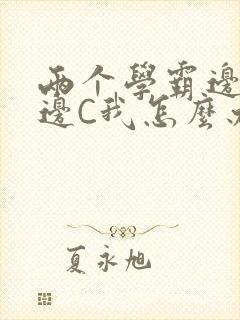 两个學霸邊
邊C我怎麼
夏永旭